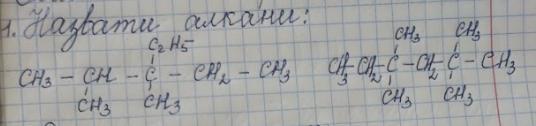 1. Назвати алкани:
C₂H₅ CH₃ CH₃
CH₃ – CH – C – CH₂ – CH₃ CH₃–CH₂–C–CH₂–C–CH₃
CH₃ CH₃ CH₃ CH₃